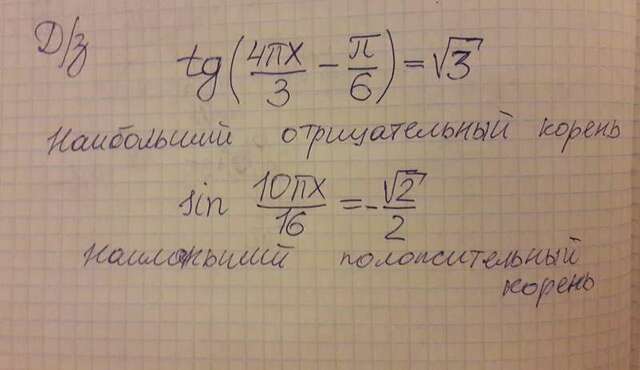 Д/з
tg(4πx/3 − π/6) = √3
Наибольший отрицательный корень
sin 10πx/16 = -√2/2
Наименьший положительный
корень